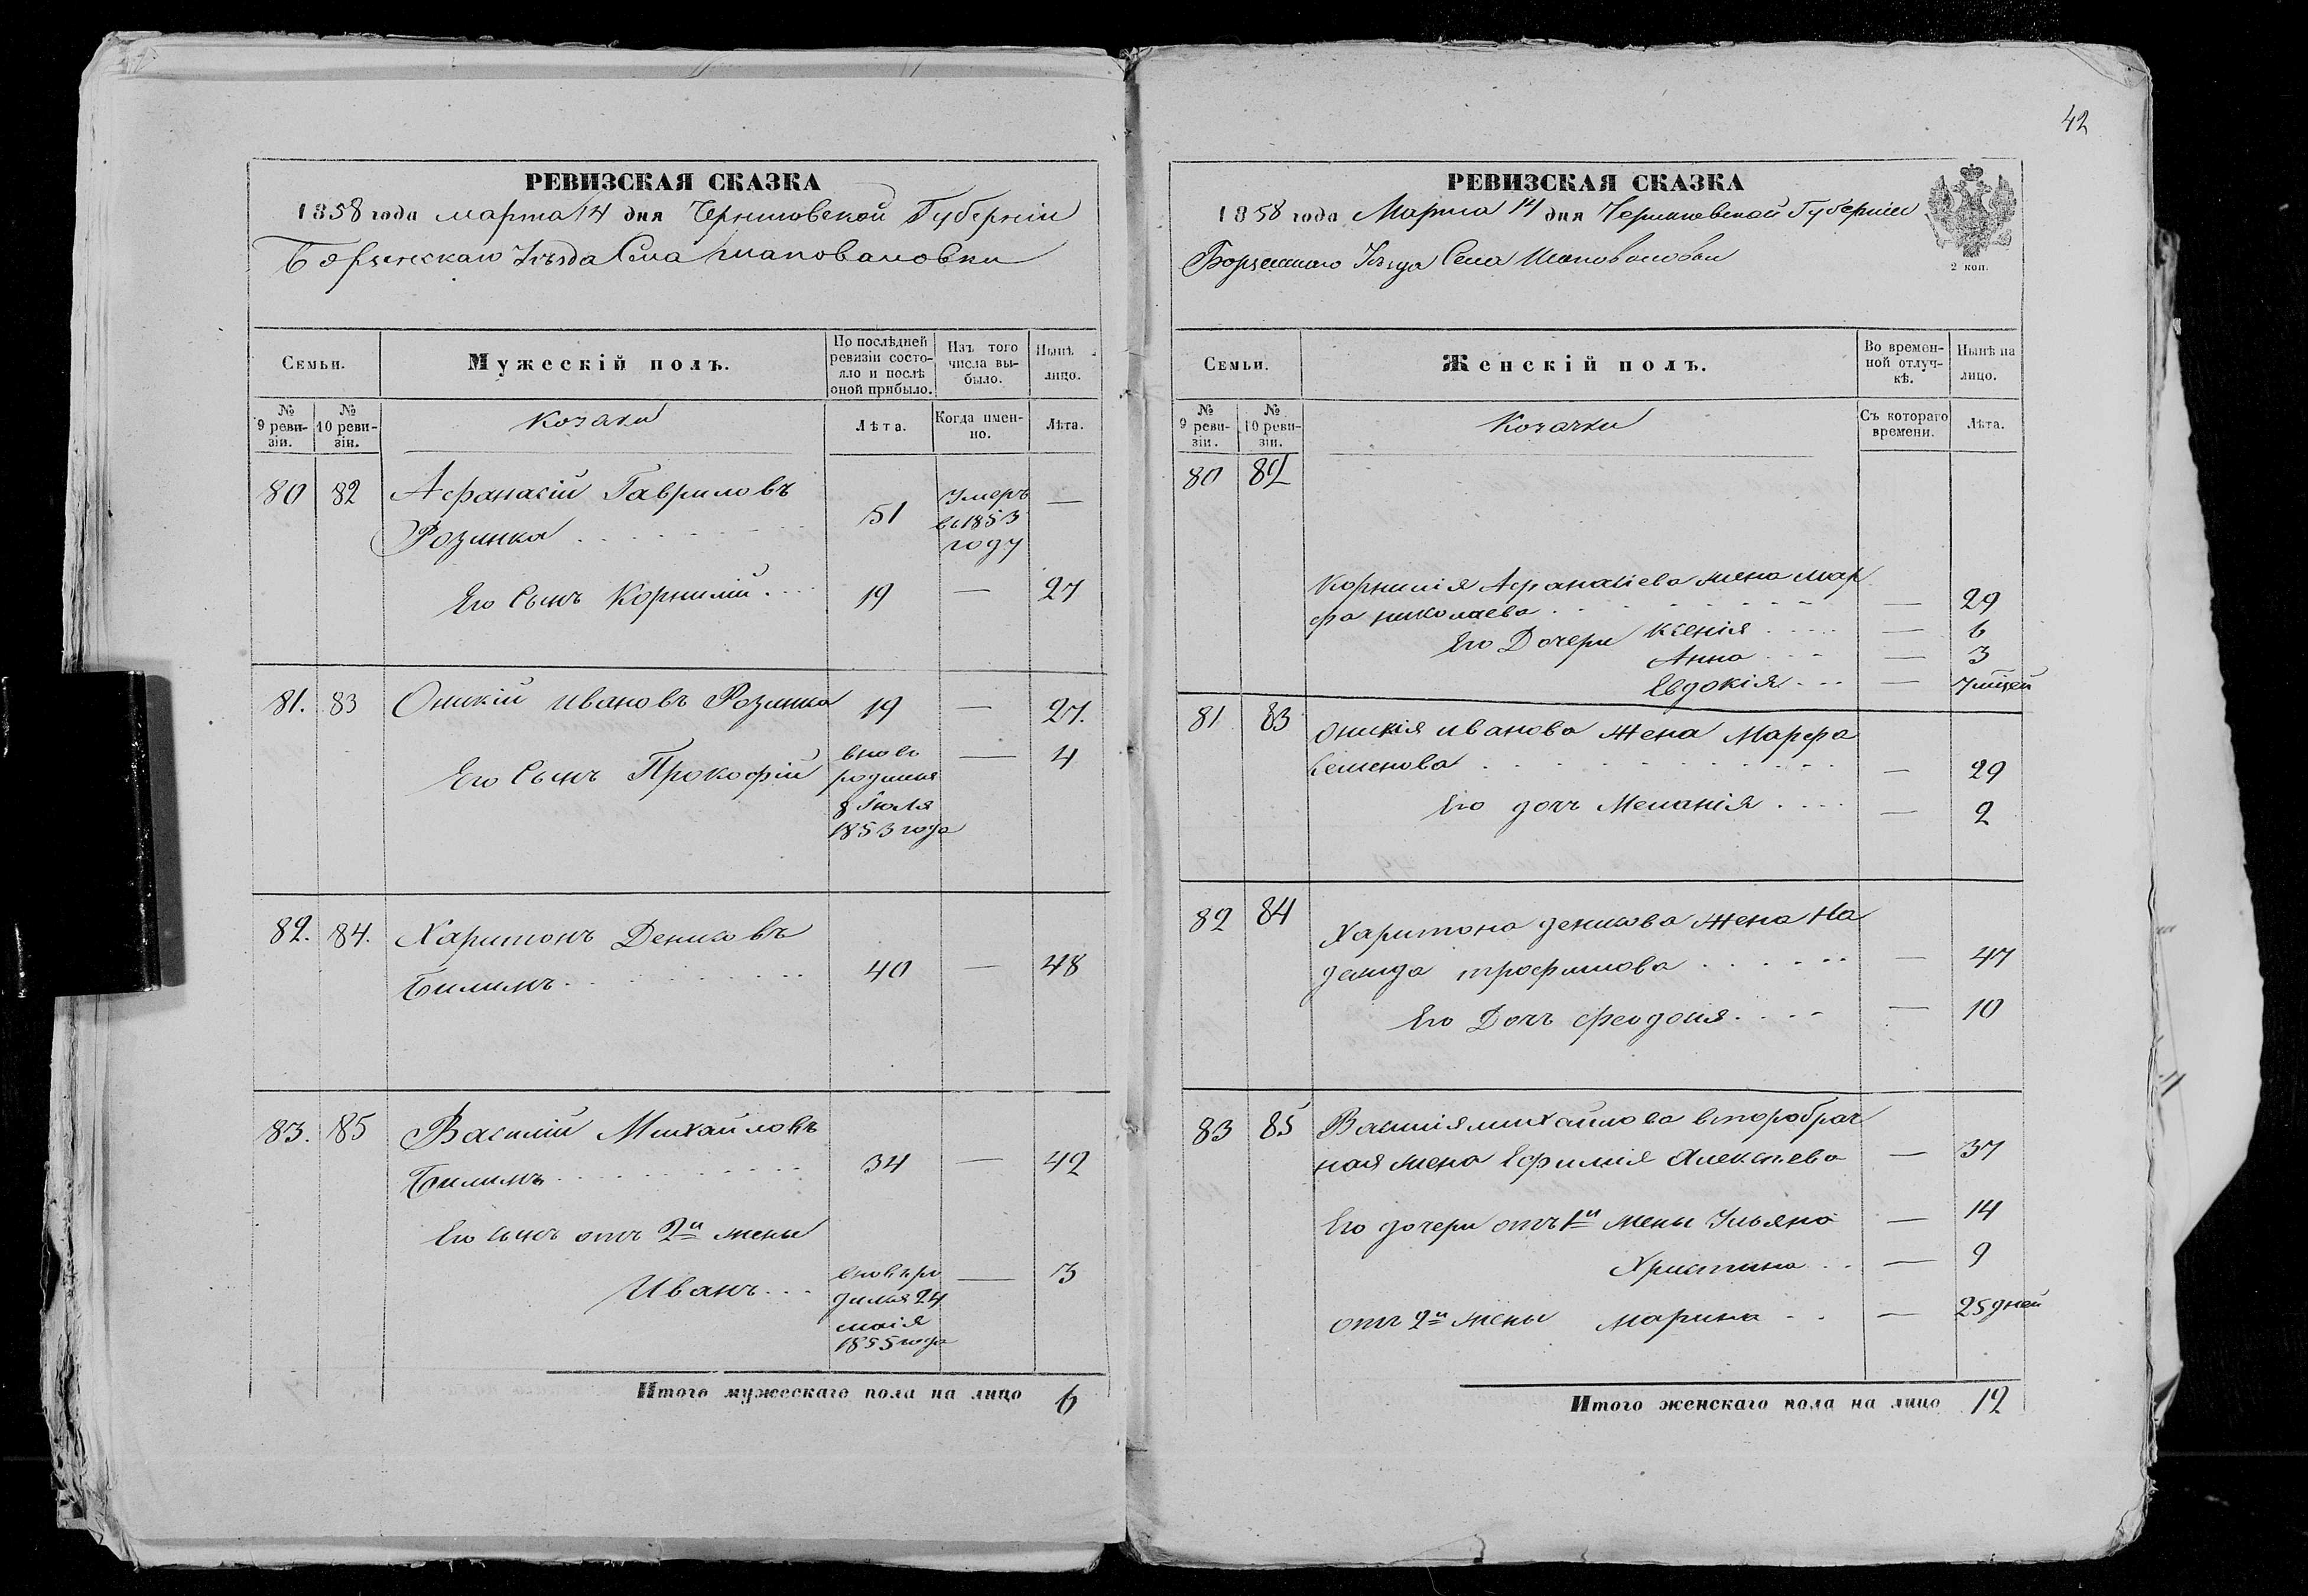 42
РЕВИЗСКАЯ СКАЗКА
1858 года марта 14 дня Черниговской Губерніи
Борзенскаго Уѣзда Села Шаповаловки
Семьи.
Мужескій полъ.
По послѣдней ревизіи состояло и послѣ оной прибыло.
Изъ того числа выбыло.
Нынѣ лицо.
№ 9 ревизіи.
№ 10 ревизіи.
Козаки
Лѣта.
Когда именно.
Лѣта.
80 82 Афанасій Гавриловъ
Розинка 51 Умеръ въ 1853 году —
Его Сынъ Корнилій 19 — 27
81. 83 Оникій Ивановъ Розинка 19 — 27.
Его Сынъ Прокофій вновь родился 8 Іюля 1853 года — 4
82. 84. Харитонъ Денисовъ
Билимъ 40 — 48
83. 85 Василій Михайловъ
Билимъ 34 — 42
Его сынъ отъ 2й жены
Иванъ вновь родился 24 маія 1855 года — 3
Итого мужескаго пола на лицо 6
РЕВИЗСКАЯ СКАЗКА
1858 года Марта 14 дня Черниговской Губерніи
Борзенскаго Уѣзда Села Шаповаловки
2 коп.
Семьи.
Женскій полъ.
Во временной отлучкѣ.
Нынѣ на лицо.
№ 9 ревизіи.
№ 10 ревизіи.
Козачки
Съ котораго времени.
Лѣта.
80 82
Корнилія Афанасіева жена Мар
фа николаева — 29
Его Дочери Ксенія — 6
Анна — 3
Евдокія — 7 мѣсяцей
81 83 Оникія Иванова Жена Марфа
Семенова — 29
Его дочь Меланія — 2
82 84 Харитона денисова Жена На
дежда трофимова — 47
Его Дочь феодосія — 10
83 85 Василія михайлова второбрач
ная жена Ефимія Алексѣева — 37
Его дочери отъ 1й жены Ульяна — 14
Христина — 9
отъ 2й жены марина — 25 дней
Итого женскаго пола на лицо 12